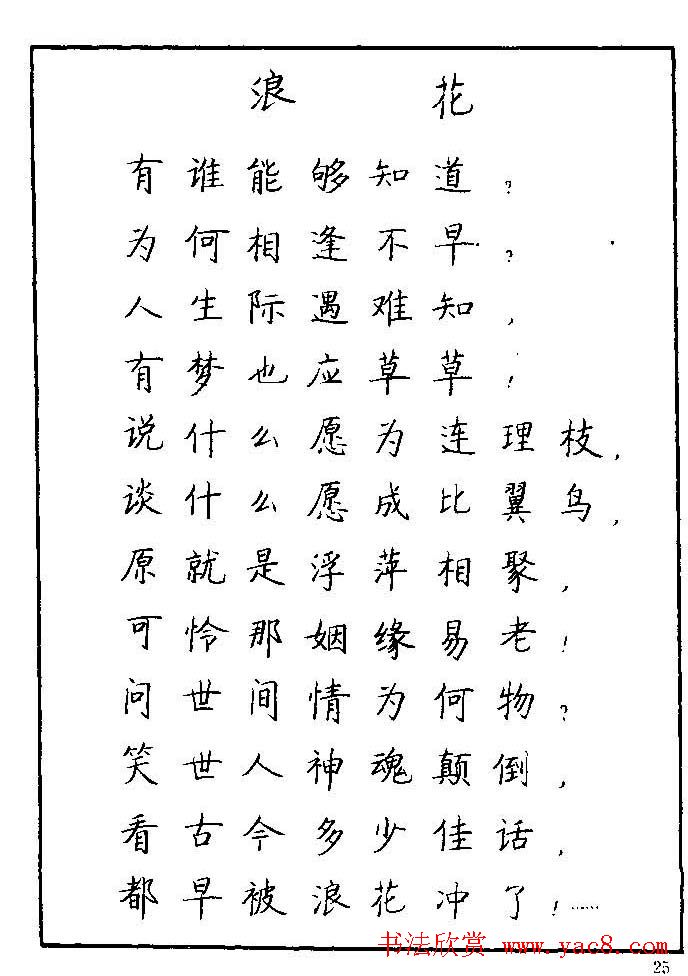 浪花
有谁能够知道？
为何相逢不早？
人生际遇难知，
有梦也应草草！
说什么愿为连理枝，
谈什么愿成比翼鸟，
原就是浮萍相聚，
可怜那姻缘易老！
问世间情为何物？
笑世人神魂颠倒，
看古今多少佳话，
都早被浪花冲了！……
书法欣赏 www.yac8.com
25